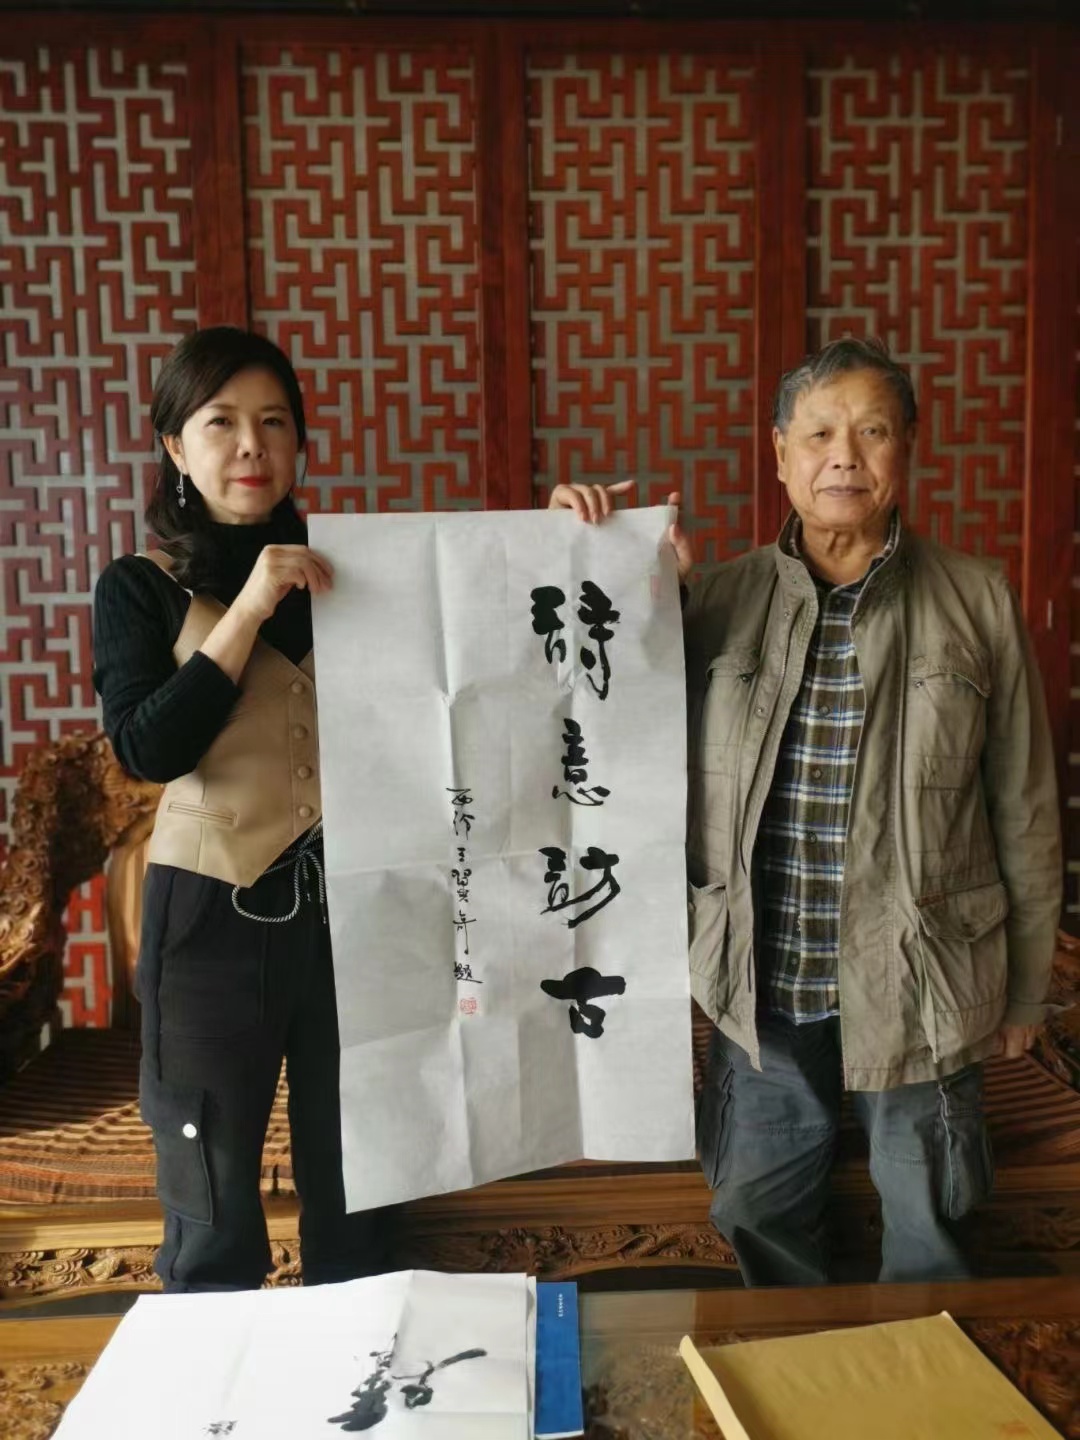 詩意訪古
西泠王翼奇題